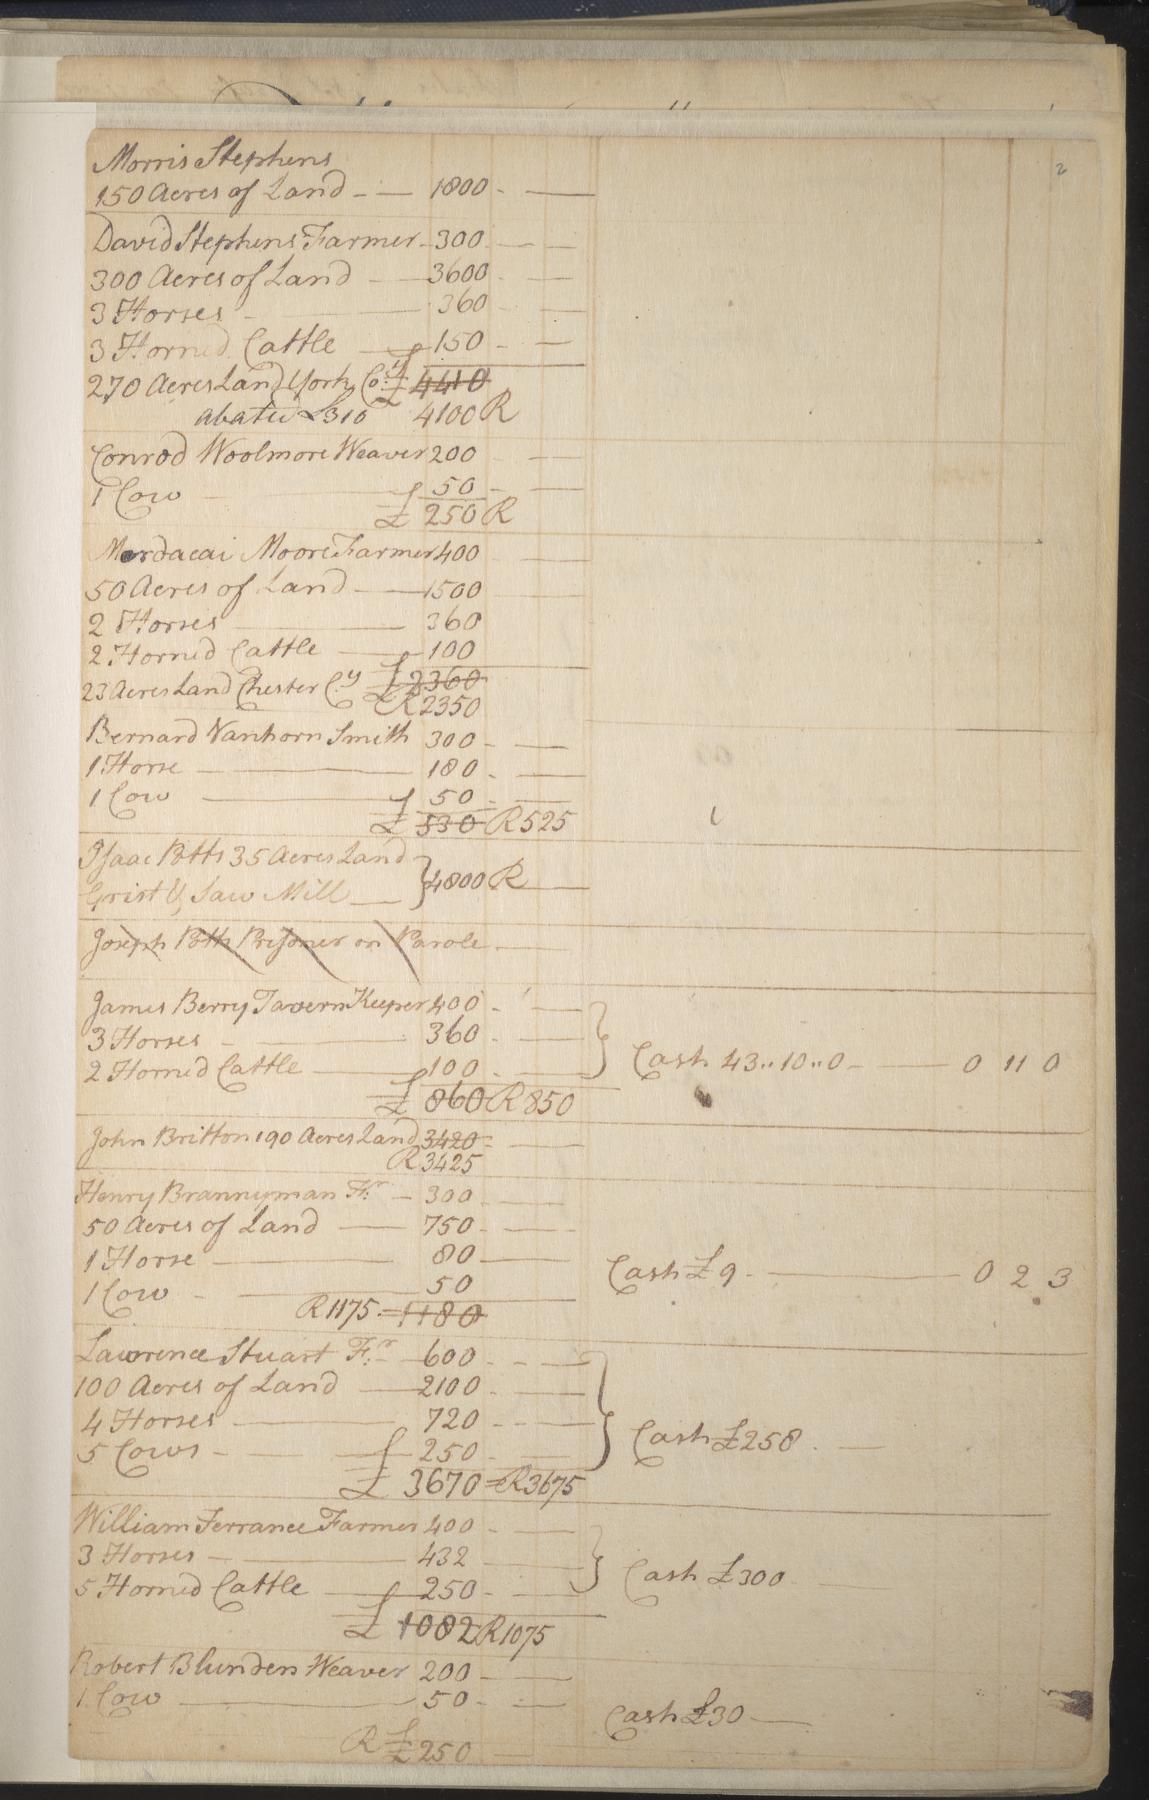 2
Morris Stephens
150 Acres of Land - — 1800 - —
David Stephens Farmer - 300 - — —
300 Acres of Land - — 3600 - —
3 Horses - — 360 - —
3 Horned Cattle — 150 - —
270 Acres Land York Coy £ 4410
abated £310 4100 R
Conrod Woolmore Weaver 200 - —
1 Cow - — 50 - —
£ 250 R
Mordacai Moore Farmer 400 - —
50 Acres of Land - — 1500
2 Horses — 360
2 Horned Cattle — 100
23 Acres Land Chester Cy £ 2360
R 2350
Bernard Vanhorn Smith 300 - —
1 Horse - — 180 - —
1 Cow — 50 - —
£ 530 R 525
Isaac Potts 35 Acres Land
Grist & Saw Mill — } 4800 R —
Joseph Potts Prisoner on Parole - —
James Berry Tavern Keeper 400 - —
3 Horses - — 360 - —
2 Horned Cattle — 100 - — } Cash 43..10..0 - — 0 11 0
£ 860 R 850
John Britton 190 Acres Land 3420 - —
R 3425
Henry Brannyman Fr - 300 - —
50 Acres of Land — 750 - —
1 Horse — 80 —
1 Cow - — 50 Cash £9 - — 0 2 3
R 1175 = 1180
Lawrence Stuart Fr - 600 - - —
100 Acres of Land — 2100 - —
4 Horses — 720 - - —
5 Cows - — 250 - — } Cash £258 -
£ 3670 = R 3675
William Ferrance Farmer 400 - —
3 Horses - — 432 —
5 Horned Cattle — 250 - — } Cash £300
£ 1082 R 1075
Robert Blunden Weaver 200 - —
1 Cow — 50 - — Cash £30 —
R £ 250